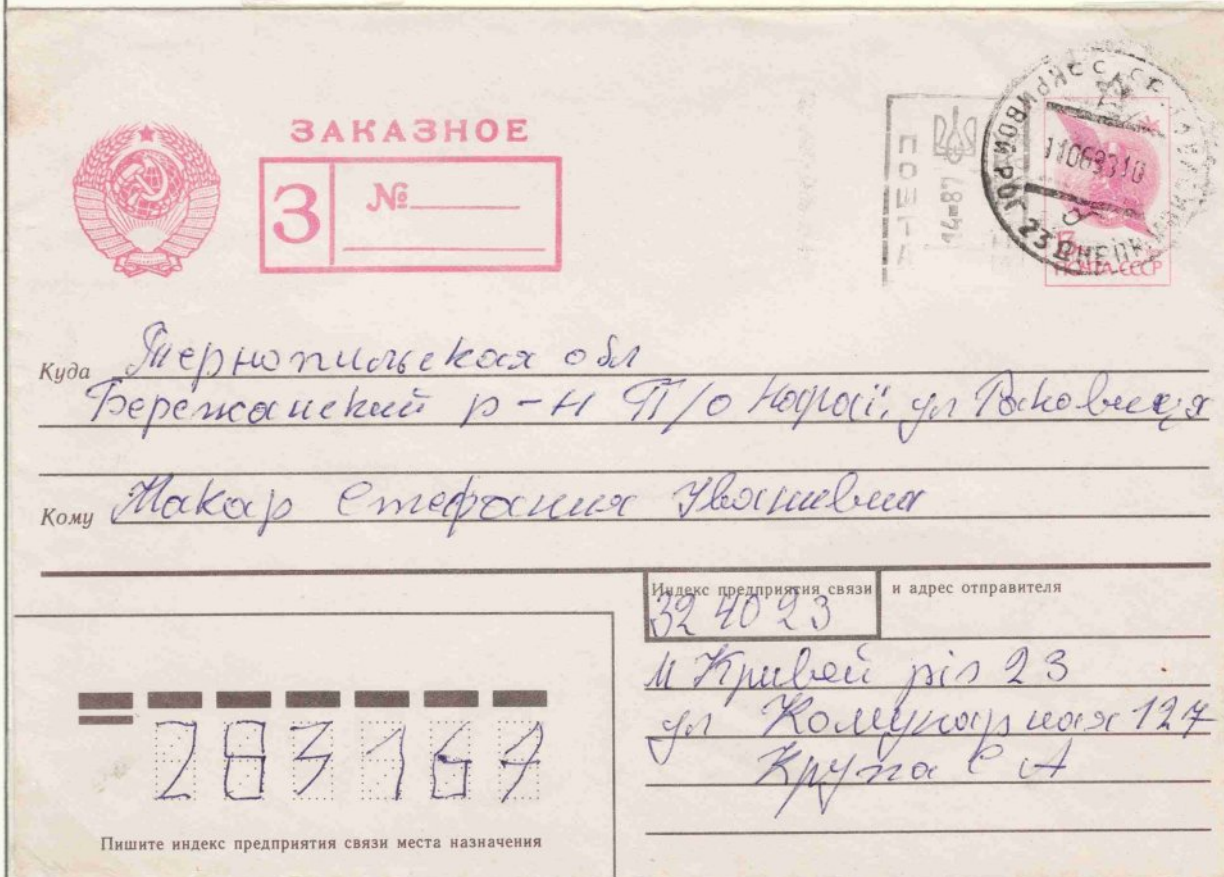 ЗАКАЗНОЕ
З №
ПОШТА
14=87
КРИВОЙ РОГ 23 ДНЕПР
11069310
ПОЧТА СССР
Куда Тернопильская обл
Бережанский р-н П/о Нараїв, ул Раковецкая
Кому Макар Стефания Иванивна
Индекс предприятия связи и адрес отправителя
324023
М Кривей ріг 23
ул Комунарная 127
Крупа С А
283167
Пишите индекс предприятия связи места назначения